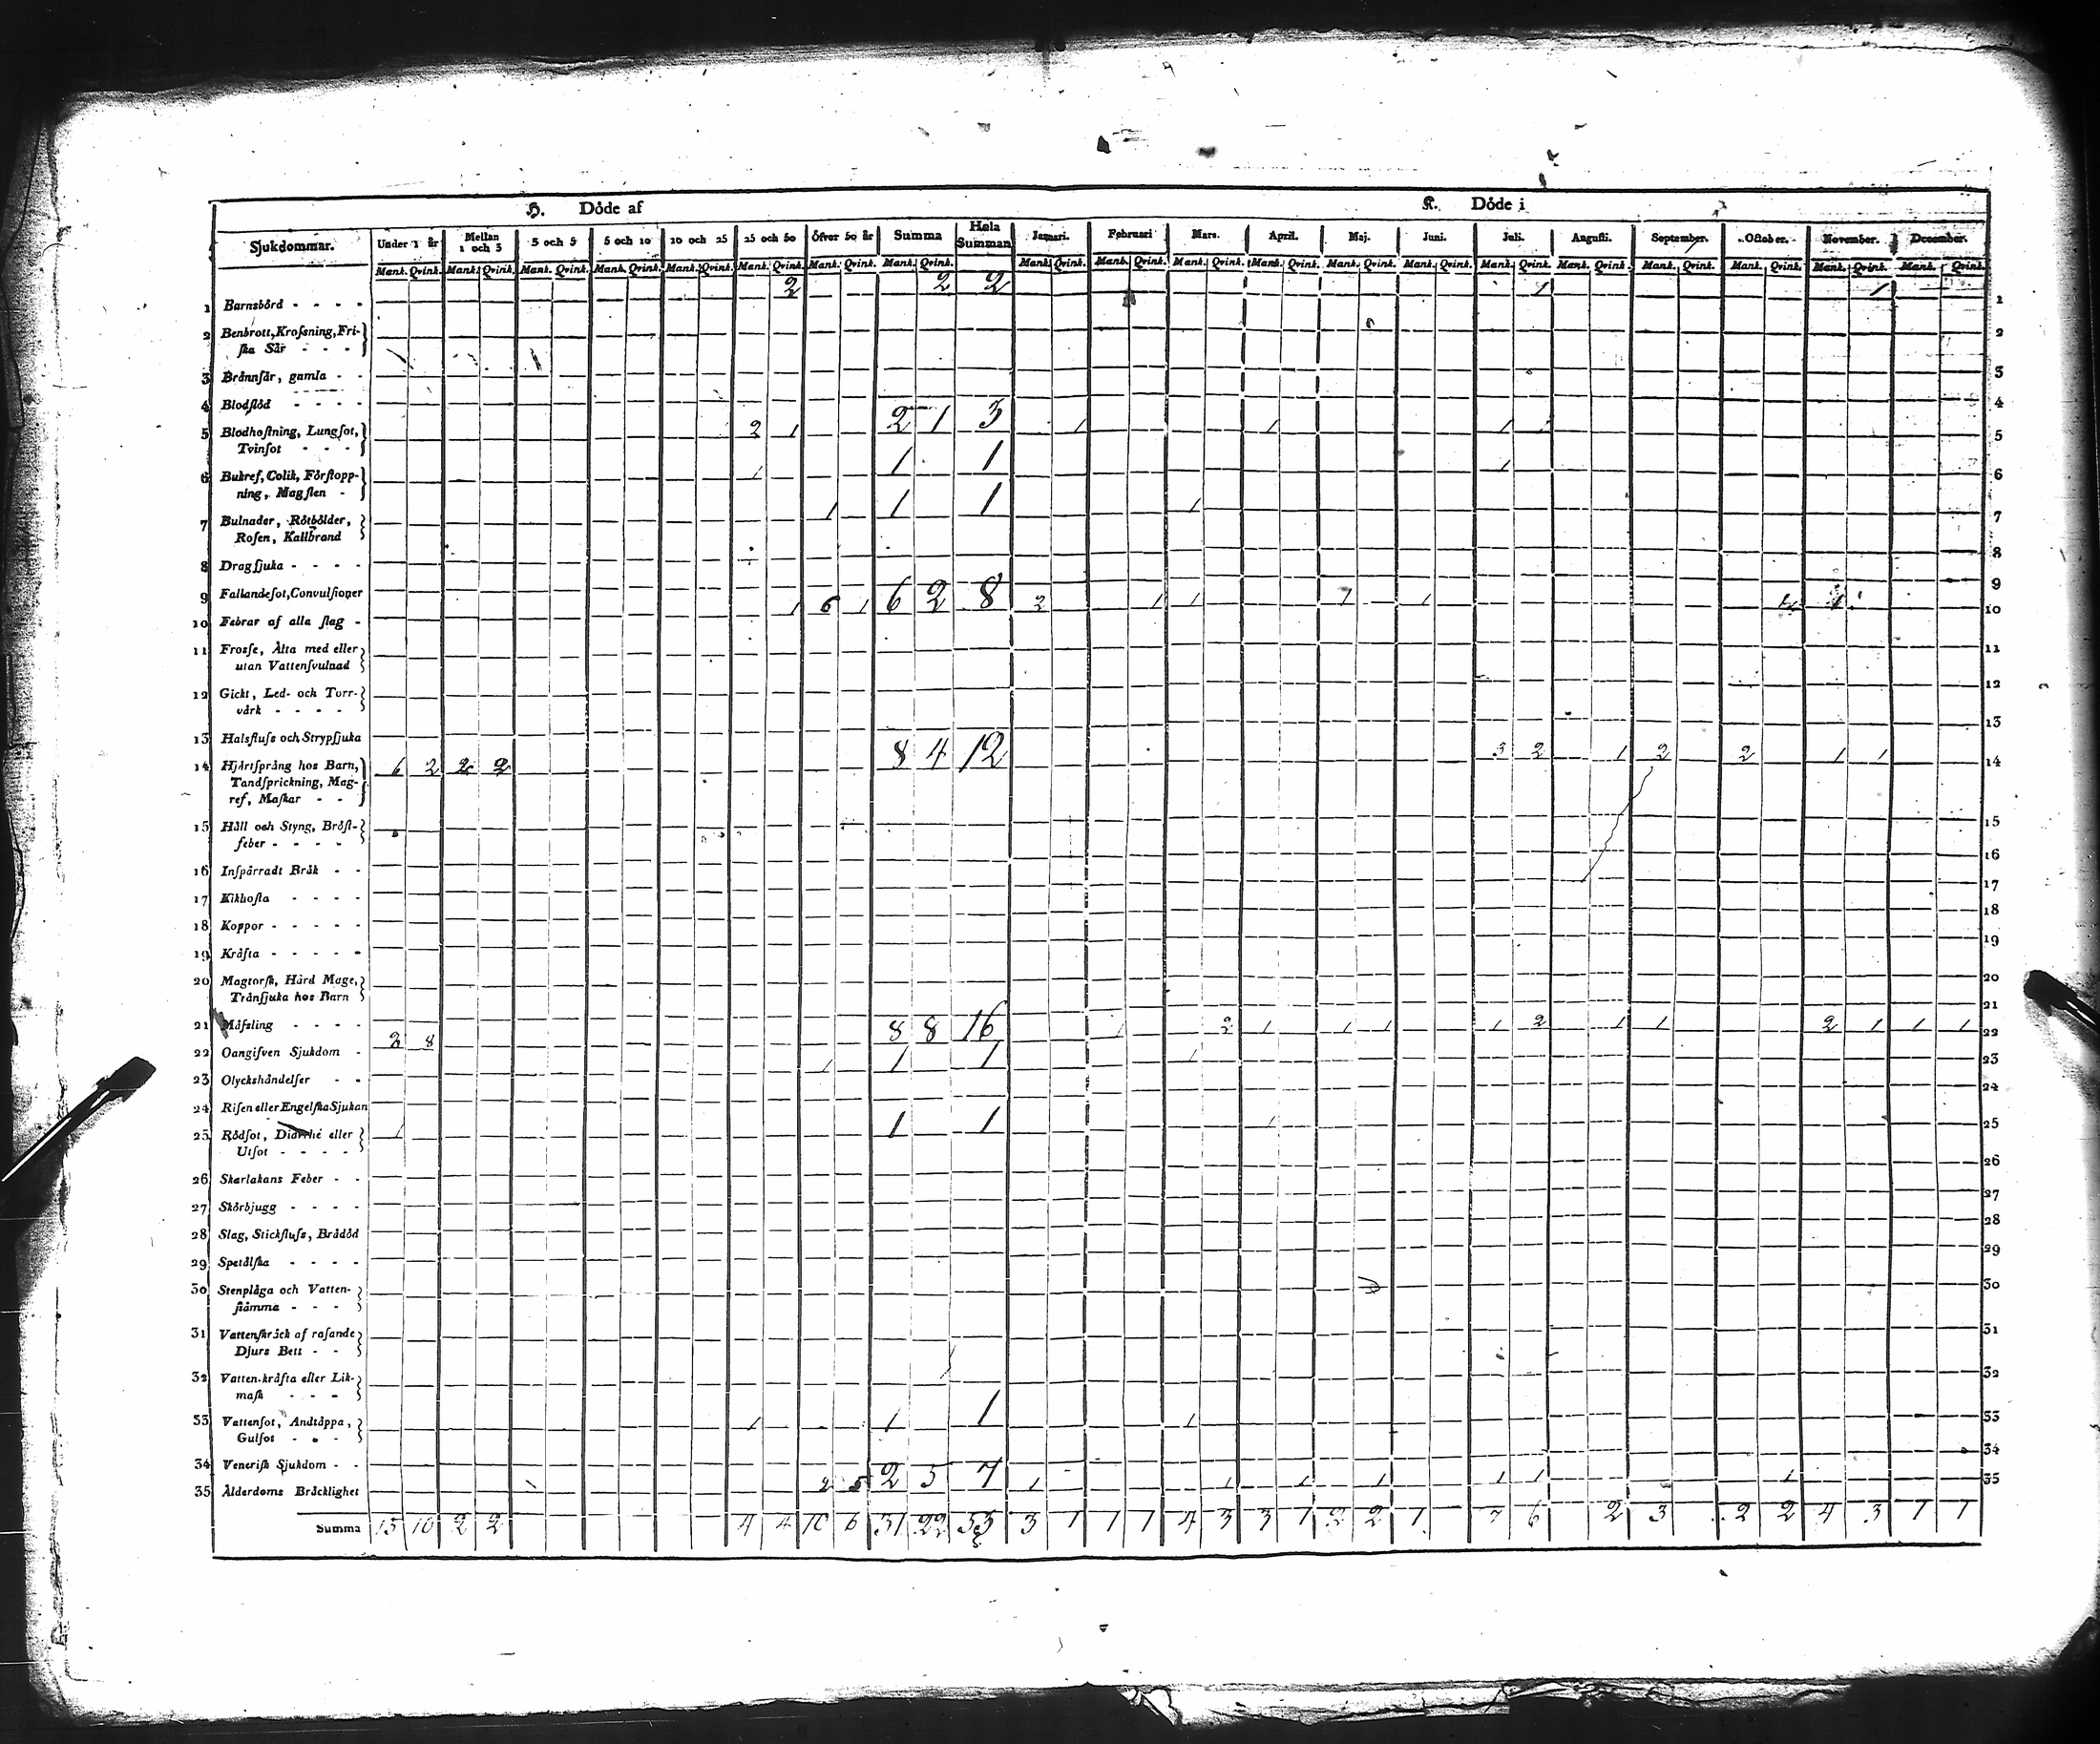 H. Döde af K. Döde i
Sjukdommar. Under 1 år Mellan 1 och 3 3 och 5 5 och 10 10 och 25 25 och 50 Öfver 50 år Summa Hela Summan Januari. Februari Mars. April. Maj. Juni. Juli. Augusti. September. October. November. December.
Mank. Qvink. Mank. Qvink. Mank. Qvink. Mank. Qvink. Mank. Qvink. Mank. Qvink. Mank. Qvink. Mank. Qvink. Mank. Qvink. Mank. Qvink. Mank. Qvink. Mank. Qvink. Mank. Qvink. Mank. Qvink. Mank. Qvink. Mank. Qvink. Mank. Qvink. Mank. Qvink. Mank. Qvink. Mank. Qvink.
1 Barnsbörd - - - - 2 2 2 1 1 1
2 Benbrott, Krossning, Fri-
ska Sår - - - 2
3 Brännsår, gamla - - 3
4 Blodflöd - - - - 4
5 Blodhostning, Lungsot, 2 1 2 1 3 1 1 1 1 5
Tvinsot - - -
6 Bukref, Colik, Förstopp- 1 1 1 1 6
ning, Magsten -
7 Bulnader, Rötbölder, 1 1 1 1 7
Rosen, Kallbrand
8 Dragsjuka - - - - 8
9 Fallandesot, Convulsioner 9
10 Febrar af alla slag - 1 6 1 6 2 8 2 1 1 1 1 1 10
11 Frosse, Älta med eller 11
utan Vattensvulnad
12 Gickt, Led- och Torr- 12
värk - - - -
13 Halsfluss och Strypsjuka 13
14 Hjärtsprång hos Barn, 6 2 2 2 8 4 12 3 2 1 2 2 1 1 14
Tandsprickning, Mag-
ref, Maskar - -
15 Håll och Styng, Bröst- 15
feber - - - -
16 Inspärradt Bråk - - 16
17 Kikhosta - - - - 17
18 Koppor - - - - - 18
19 Kräfta - - - - - 19
20 Magtorsk, Hård Mage, 20
Tränsjuka hos Barn
21 Mässling - - - - 21
22 Oangifven Sjukdom - 2 8 8 8 16 1 2 1 1 1 1 2 1 1 2 1 1 1 22
23 Olyckshändelser - - 1 1 1 1 23
24 Risen eller Engelska Sjukan 24
25 Rödsot, Diarrhé eller 1 1 1 1 25
Utsot - - - -
26 Skarlakans Feber - - 26
27 Skörbjugg - - - - 27
28 Slag, Stickfluss, Brådöd 28
29 Spetälska - - - - 29
30 Stenplåga och Vatten- 30
stämma - - -
31 Vattenskräck af rasande 31
Djurs Bett - -
32 Vatten-kräfta eller Lik- 32
mask - - -
33 Vattensot, Andtäppa, 1 1 1 1 33
Gulsot - - -
34 Venerisk Sjukdom - - 34
35 Ålderdoms Bräcklighet 2 5 2 5 7 1 1 1 1 1 1 1 35
Summa 10 2 2 4 4 10 6 31 22 53 3 1 1 1 4 3 3 1 2 2 1 7 6 2 3 2 2 4 3 1 1